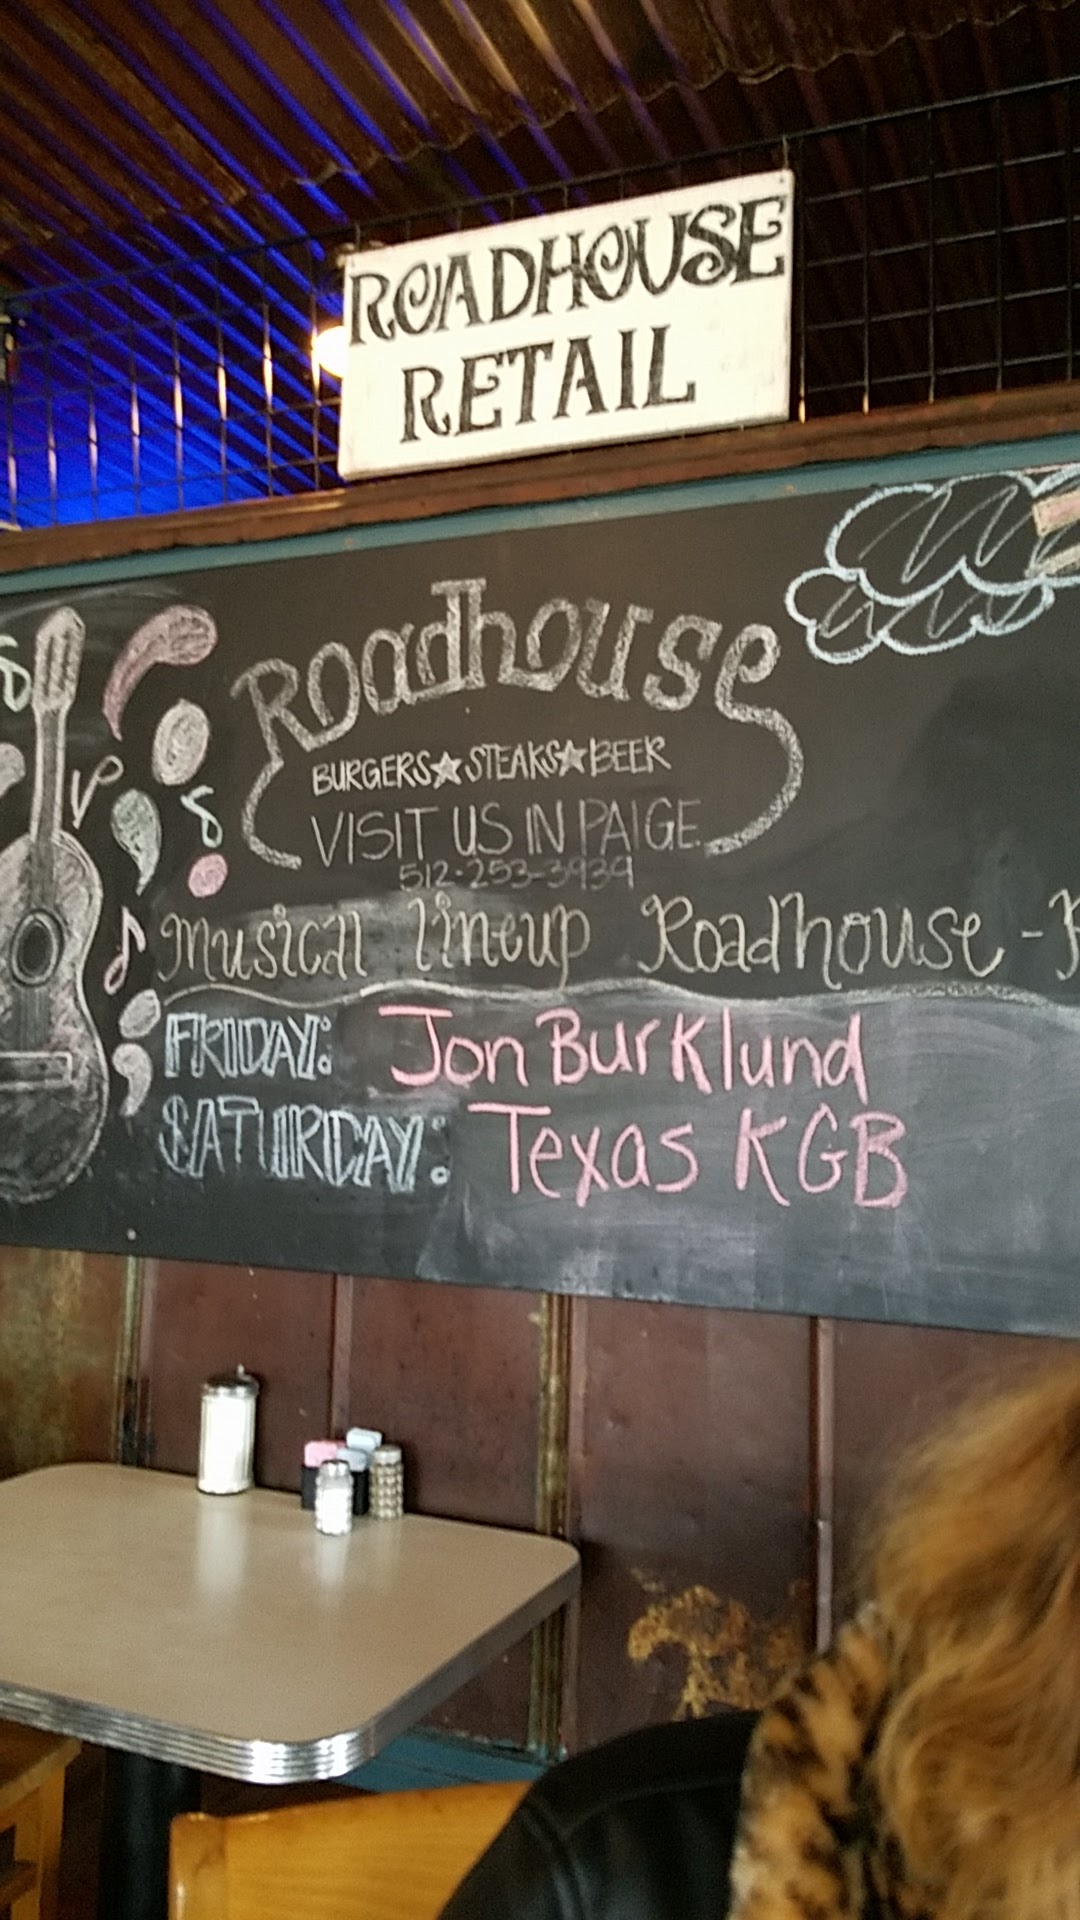 ROADHOUSE
RETAIL
Roadhouse
BURGERS★STEAKS★BEER
VISIT US IN PAIGE
512-253-3939
Musical lineup Roadhouse -
FRIDAY: Jon Burklund
SATURDAY: Texas KGB